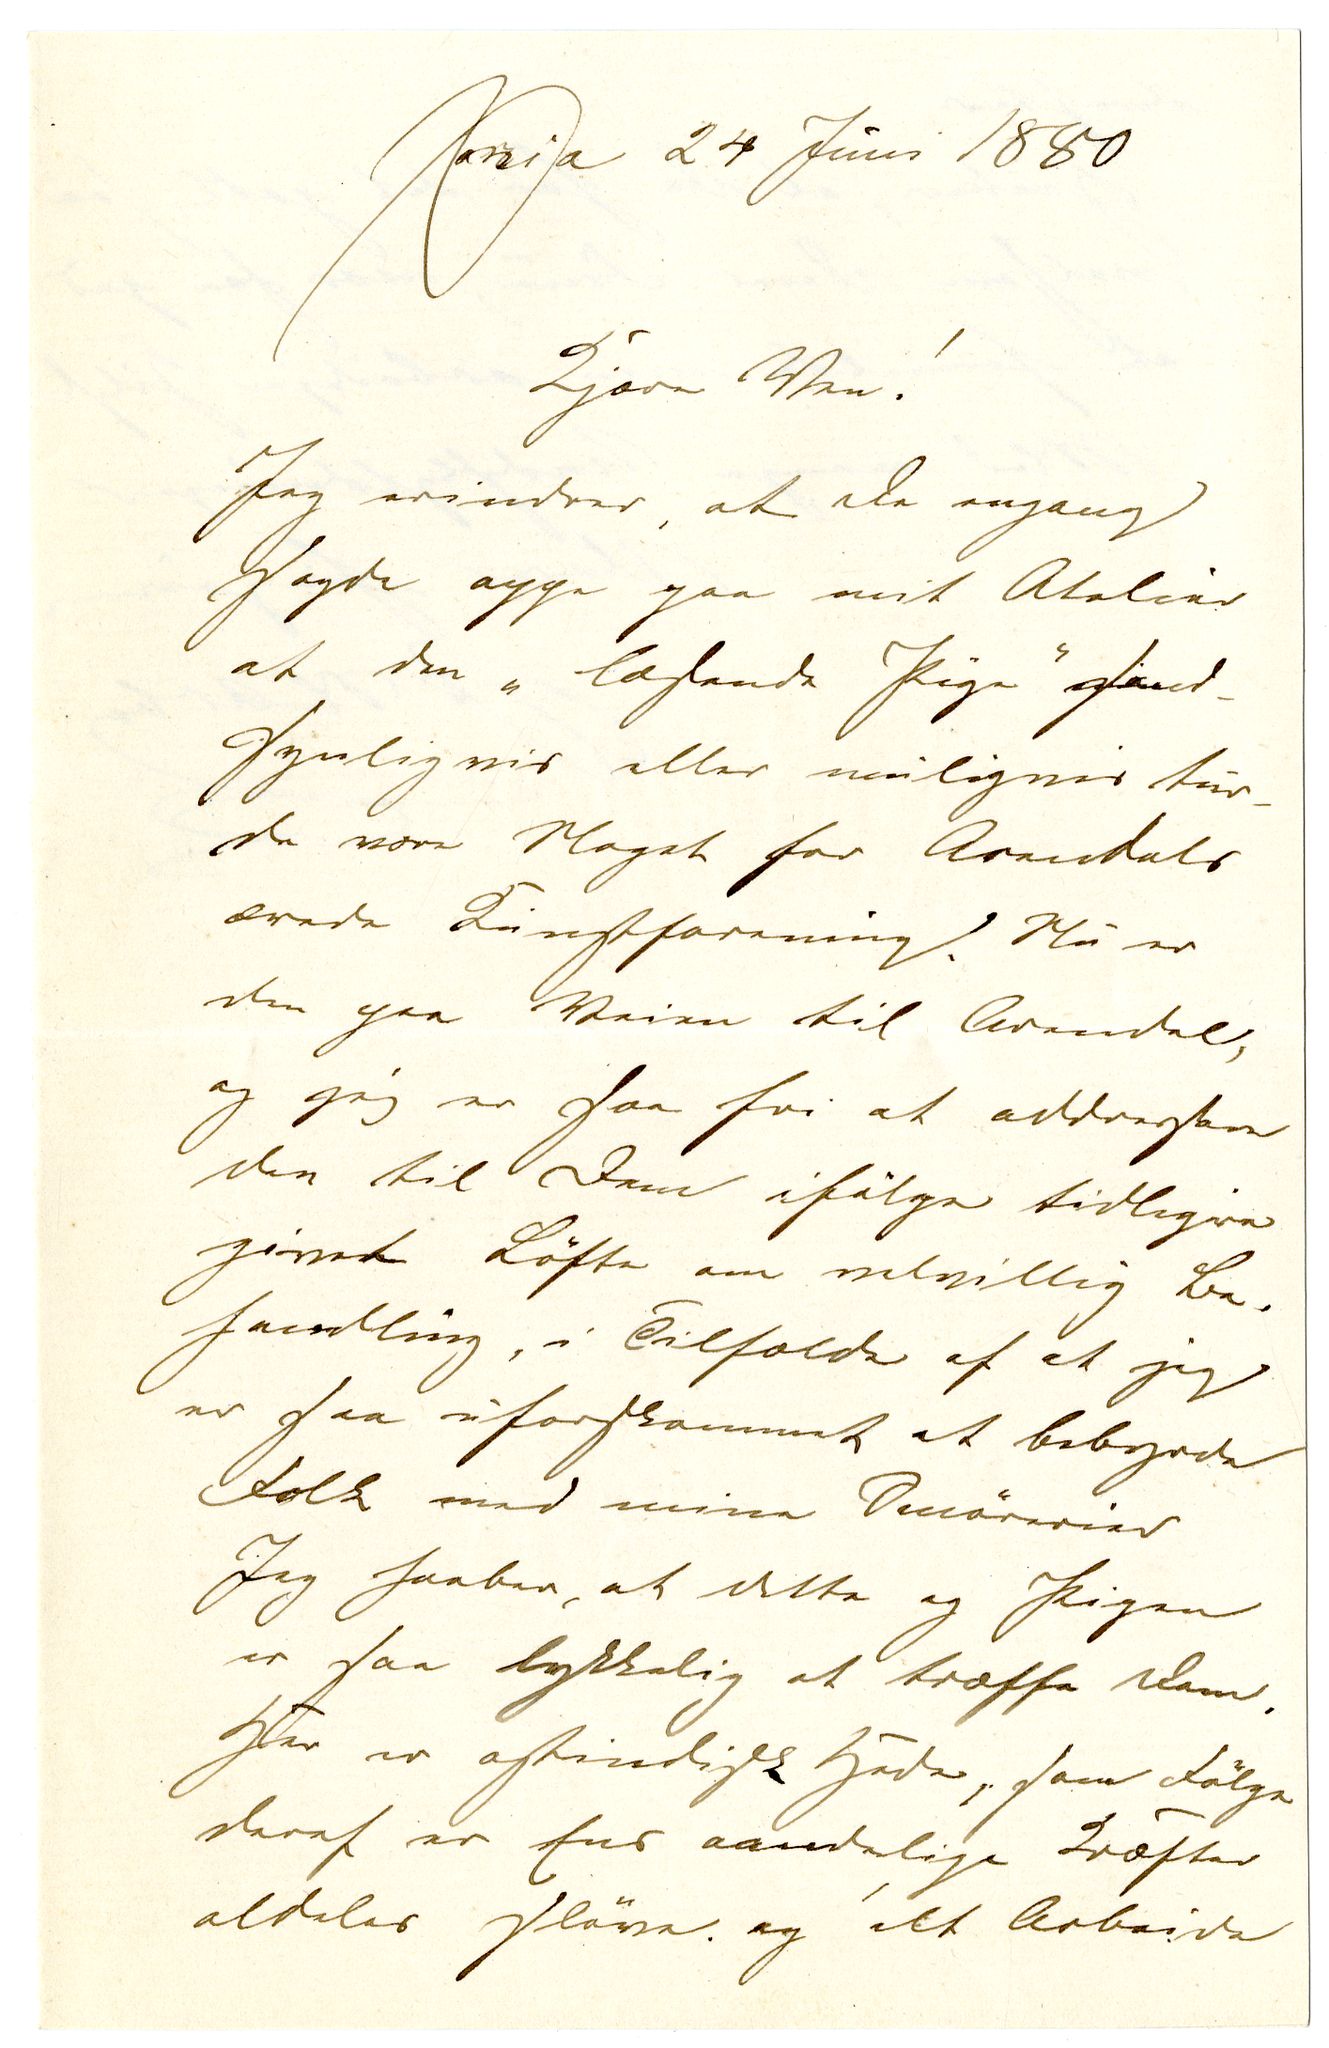 Xania 24 Juni 1880
Kjære Ven!
Jeg erindrer, at De engang
sagde oppe paa mit Atelier
at den „læsende Pige" sand-
synligvis eller muligvis tur-
de være Noget for Arendals
ærede Kunstforening! Nu er
den paa Veien til Arendal,
og jeg er saa fri at addressere
den til Dem ifölge tidligere
givet Löfte om velvillig Be-
handling, i Tilfælde af at jeg
er saa uforskammet at bebyrde
Folk med mine Smörerier
Jeg haaber, at dette og Pigen
er saa lykkelig at træffe Dem.
Her er ostindisk Hede, som Fölge
deraf er Ens aandelige Kræfter
aldeles slöve. og alt Arbeide